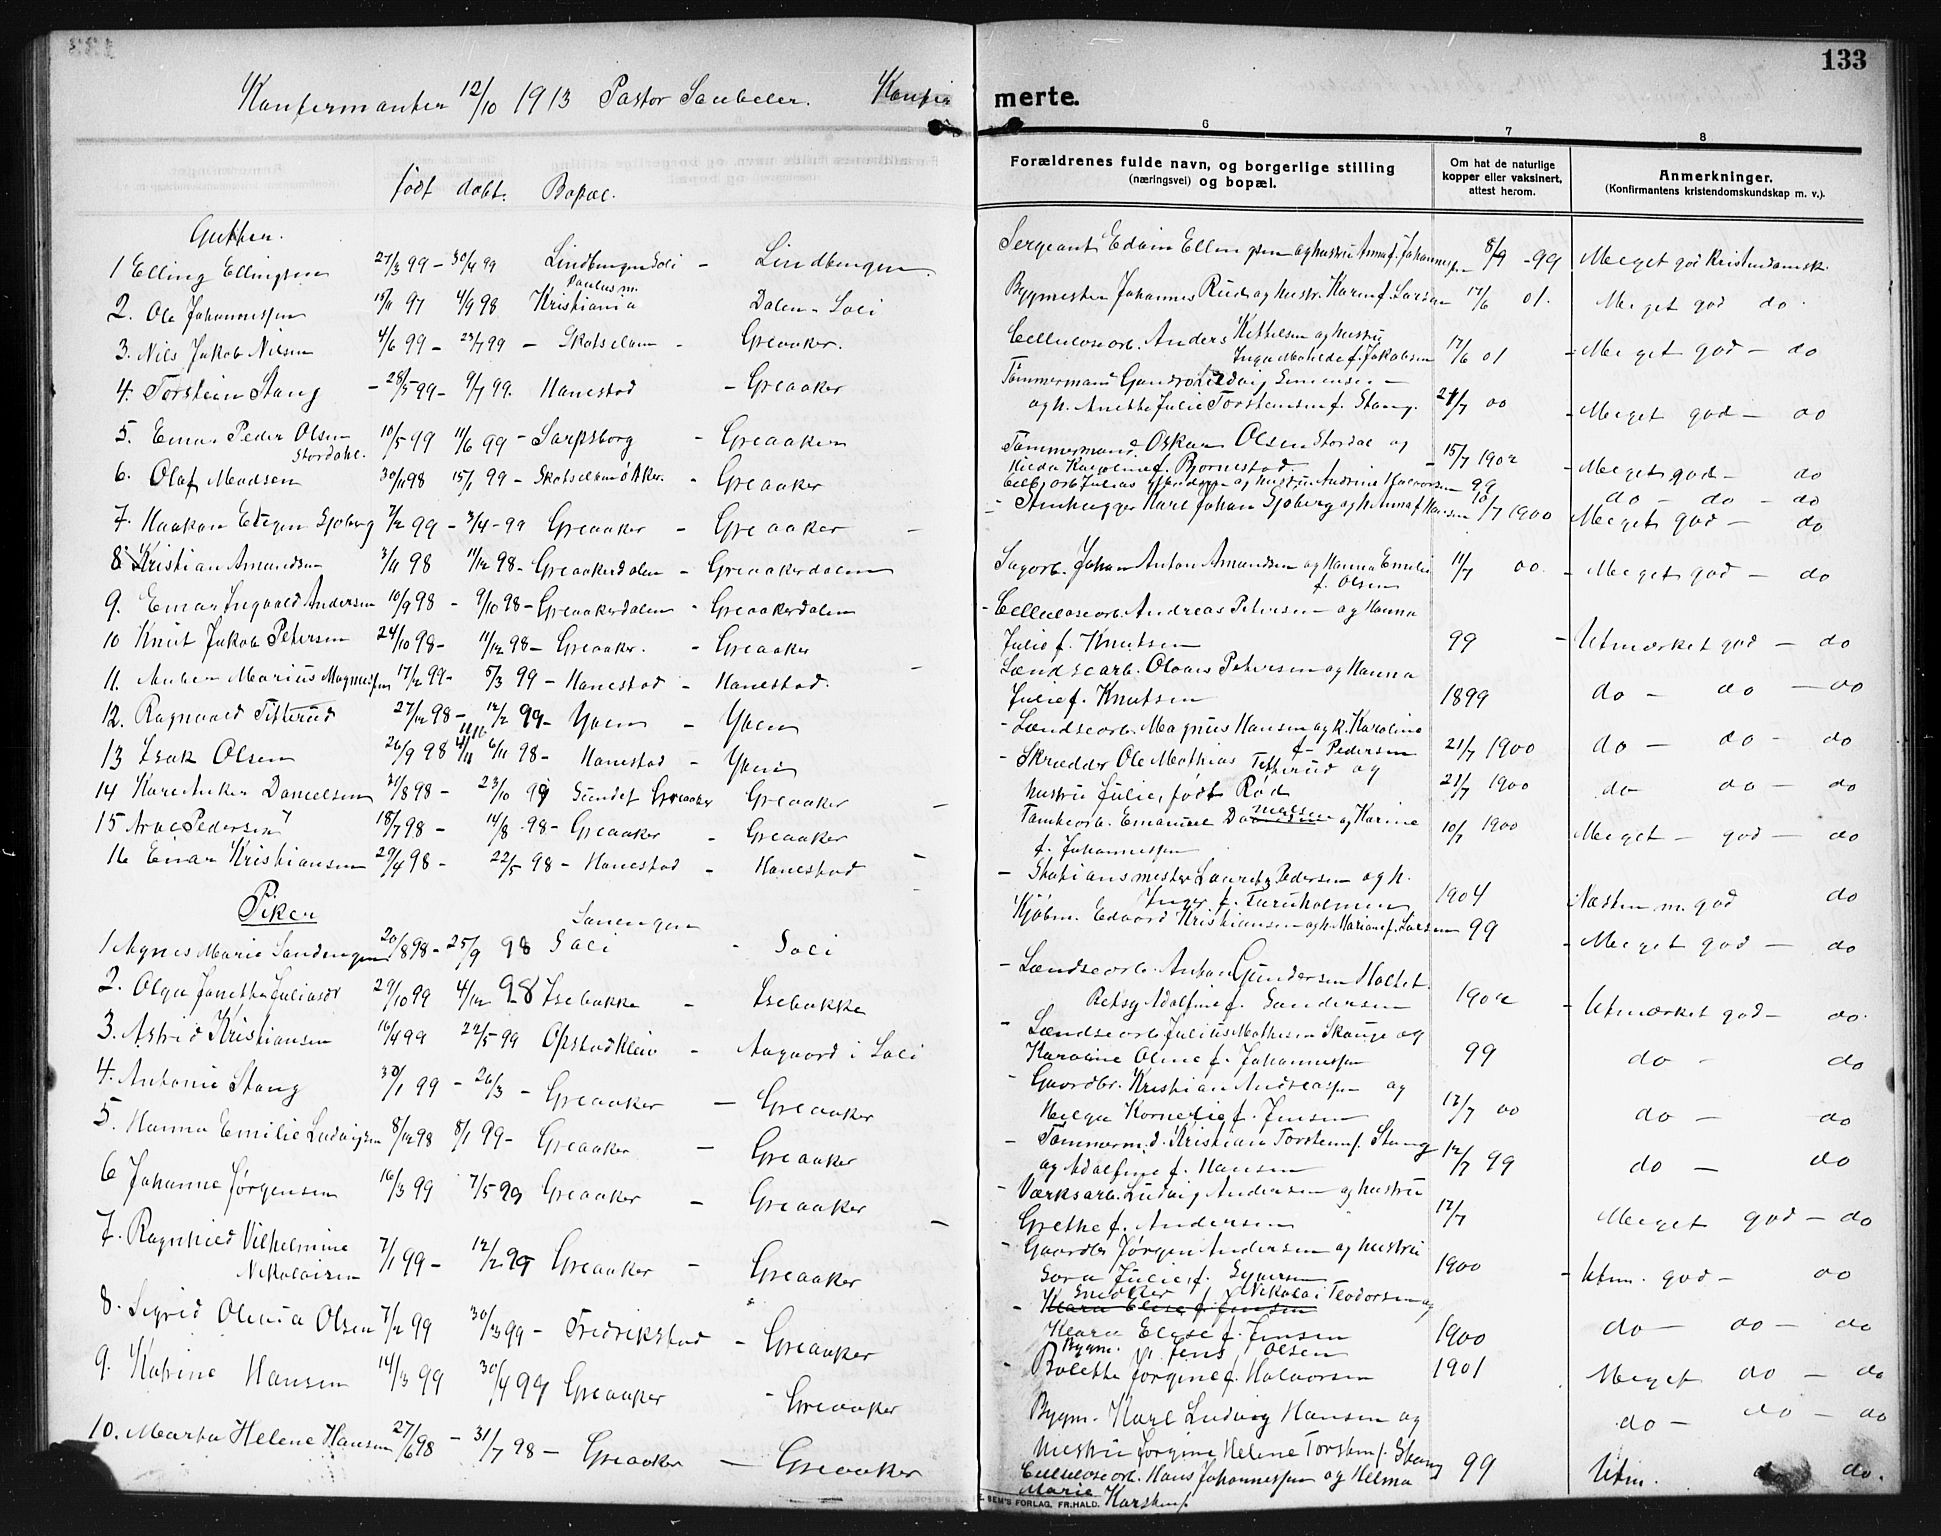 133
Konfermanter 12/10 1913 Pastor
Konfir merte.
6 7 8
Forældrenes fulde navn, og borgerlige stilling
(næringsvei) og bopæl.
Om hat de naturlige
kopper eller vaksinert,
attest herom.
Anmerkninger.
(Konfirmantens kristendomskundskap m. v.).
født døbt. Bopæl.
Gutter.
1 Elling Ellingsen 27/3 99 - 30/4 99 Lindbergen Soli - Lindbergen.
2. Ole Johannessen 15/11 97 4/9 98 Paulus m. Kristiania Dalen - Soli
3. Nils Jakob Nilsen 4/6 99 - 23/7 99 - Skotselven - Greaaker.
4. Torstein Stang - 28/5 99 - 9/7 99. Hanestad - Greaaker
5. Einar Peder Olsen 10/5 99 11/6 99 - Sarpsborg - Greaaker
Stordahl.
6. Olaf Madsen 30/11 98 15/1 99 - Skotselven Ø Aker. - Greaaker
7. Haakon Edvin Sjøberg 7/2 99 - 3/4 - 99 Greaaker - Greaaker
8 Kristian Amundsen 3/11 98 11/12 98 - Greaakerdalen - Greaakerdalen
9. Einar Ingvald Andersen 10/9 98 - 9/10 98 - Greaakerdalen - Greaakerdalen
10 Knut Jakob Petersen 24/10 98 - 11/12 98 - Greaaker. - Greaaker
11. Anker Marius Magnussen 17/2 99 - 5/3 99 - Hanestad - Hanestad.
12. Ragnvald Titterud 27/12 98 - 12/2 99 - Yven - Yven
13 Isak Olsen 26/9 98 6/11 98 - Hanestad - Yven
14 Kare Anker Danielsen 31/8 98 - 23/10 99 Sundet Greaaker Greaaker
15 Arne Pedersen 18/7 98 - 14/8 98 - Greaaker - Greaaker
16 Einar Kristiansen 29/4 98 - 22/5 98 - Hanestad - Hanestad
Piker
1 Agnes Marie Sandengen 20/8 98 - 25/9 98 Sanengen Soli - Soli
2. Olga Janette Juliusdr 29/10 99 4/12 98 Isebakke - Isebakke
3. Astrid Kristiansen 16/4 99 22/5 - 99 Opstadkleiv - Aagaard i Soli
4. Antonie Stang 30/1 99 - 26/3 - Greaaker - Greaaker
5. Hanna Emilie Ludvigsen 8/12 98 8/1 99 - Greaaker - Greaaker
6 Johanne Jørgensen 16/3 99 7/5 99 Greaaker - Greaaker
7. Ragnhild Vilhelmine 7/1 99 - 12/2 99 Greaaker - Greaaker
Nikolaisen
8. Sigrid Olivia Olsen 7/2 99 30/3 99 - Fredrikstad - Greaaker
9. Katrine Hansen 14/3 99 30/4 99 Greaaker - Greaaker
10. Marta Helene Hansen 27/6 98 - 31/7 98 - Greaaker - Greaaker
Sergeant Edvin Ellingsen og hustru Anna f. Johannessen 8/9 - 99 Meget god Kristendomsk.
Bygmester Johannes Rud og hustr. Karen f. Larsen 17/6 01. Meget god do
Celluloseorb. Anders Kittelsen og hustru
Inga Matilde f. Jakobsen 17/6 01 - Meget god - do
Tømmermand Ludvig Simensen -
og h. Anette Julie Torstensen f. Stang. 21/7 00 - Meget god - do
Tømmermand Oskar Olsen Stordal og
Hilda Karoline f. Bjørnestad. - 15/7 1902 - Meget god - do
Celbjorb Julius Madsen og hustru Andrine Halvorsen 99 do - do - do
- Stenhugger Karl Johan Sjøberg og h. Anna f. Hansen 10/7 1900 Meget god - do
Sagorb. Johan Anton Amundsen og Hanna Emilie
f. Olsen 11/7 00. - Meget god - do
- Celluloseorb. Andreas Petersen og Hanna
Julie f. Knutsen 99 - Utmærket god - do
Landsearb. Olavus Petersen og Hanna
Julie f. Knutsen 1899 do - do - do
- Lændseorb. Magnus Hansen og h. Karoline
f. Pedersen 21/7 1900 do - do - do
- Skrædder Ole Mathias Titterud og
hustru Julie, født Rød 21/7 1900 do do - do
Tomteorb. Emanuel Danielsen og Karine
f. Johannessen 10/7 1900 Meget - god - do
- Stationsmester Lauritz Pedersen og h.
Inger f. Furuholmen 1904 Næsten m. god do
Kjøbm. Edvard Kristiansen og h. Mariane f. Larsen 99 - Meget god - do
- Lændseorb. Anton Gundersen Holtet.
Betsy Adolfine f. Gundersen 1902 - Utmærket god - do.
- Lændseorb. Julius Mathisen Skauge og
Karoline Oline f. Johannessen 99 do - do
- Gaardbr. Kristian Andreassen og
Helga Kornelie f. Jensen 12/7 00 do - do
- Tømmerm.d. Kristian Torstens. Stang
og Adolfine f. Hansen 12/7 99 do - do
- Værksarb. Ludvig Andersen og hustru
Grethe f. Andersen 12/7 Meget god - do
- Gaardbr Jørgen Andersen og hustru
Sara Julie, f. Syversen 1900 - Utm. god - do
Snedker Nikolai Teodorsen og
- Klara Elise f. Jensen
Klara Elise f. Jensen 1900 do - do - do
Bygm. Jens Olsen
- Bolette Jørgine f. Halvorsen 1901 Meget do - do
Bygm. Karl Ludvig Hansen og
hustru Jørgine Helene Torstens. Stang do - do - do
Celluloseorb. Hans Johannessen og Helma 99 Utm. do do.
Marie Karstens.
E. SEM'S FORLAG, FR.HALD.